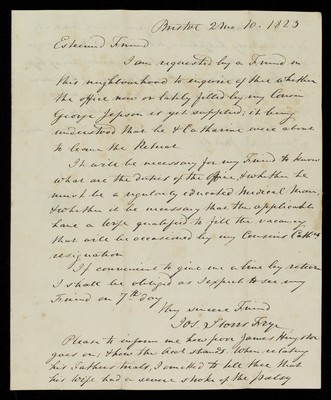 Bristol 2 mo. 10. 1823
Esteemed Friend
I am requested by a Friend in
this neighbourhood to enquire of thee whether
the office now or lately filled by my Cousin
George Jepson is yet supplied; it being
understood that he & Catharine were about
to leave the Retreat
It will be necessary for my Friend to know
what are the duties of the Office, & whether he
must be a regularly educated Medical Man,
& whether it be necessary that the applicant
have a Wife qualified to fill the vacancy
that will be occasioned by my Cousin Cath's
resignation
If convenient to give me a line by return
I shall be obliged as I expect to see my
Friend on 7th day
Thy sincere Friend
Jos. Storrs Fry
Please to inform me how poor James
goes on, & how the boat stands. When relating
his Father's trials, I omitted to tell thee that
his Wife had a severe stroke of the palsy